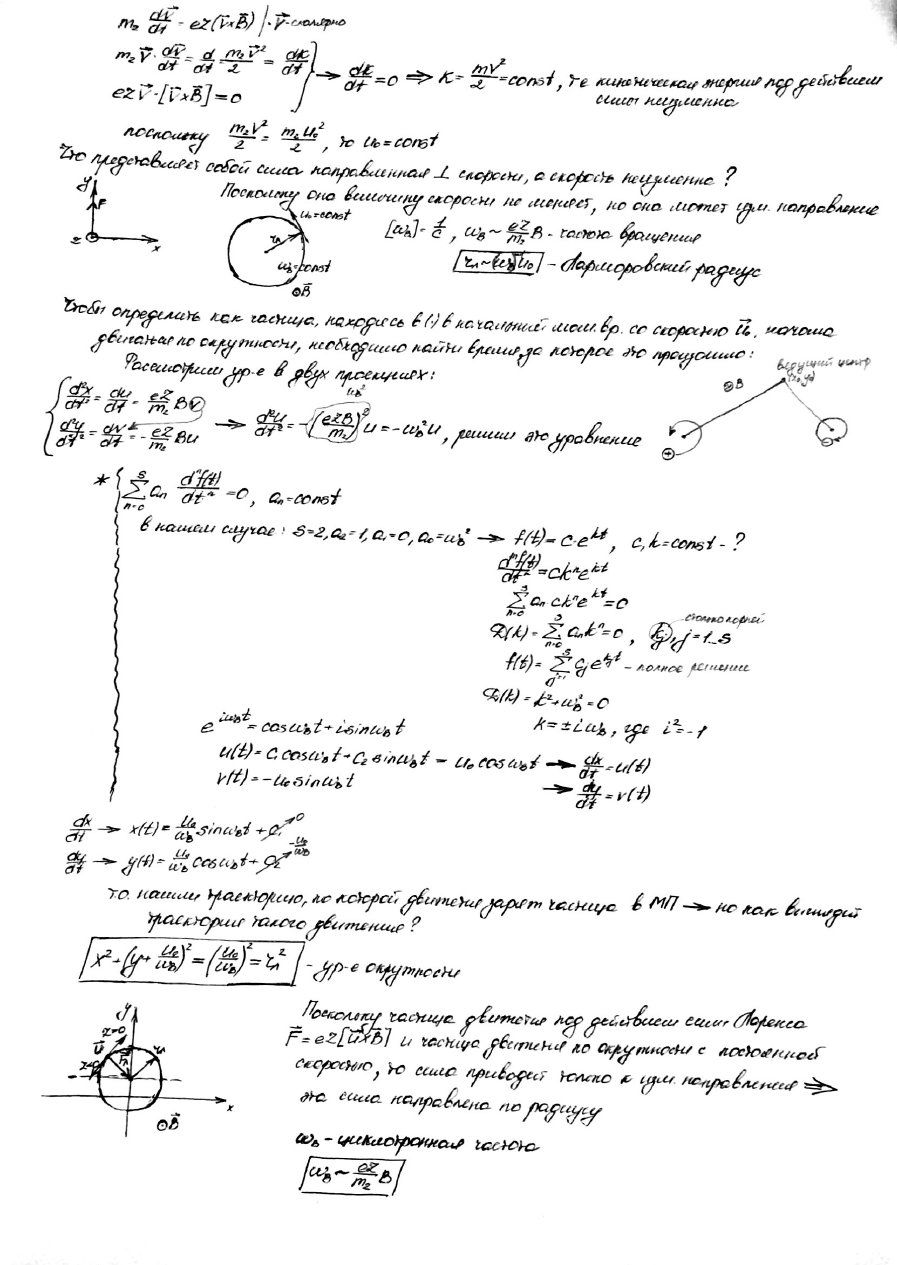 m₂ dv⃗/dt = eZ(v⃗×B⃗) | · v⃗ - скалярно
m₂ v⃗ · dv⃗/dt = d/dt m₂v⃗²/2 = dK/dt
eZ v⃗ · [v⃗×B⃗] = 0
⇒ dK/dt = 0 ⇒ K = mV²/2 = const, т.е кинетическая энергия под действием
силы неизменна
поскольку m₂V²/2 = m₂U₀²/2, то U₀ = const
Что представляет собой сила направленная ⊥ скорости, а скорость неизменна?
Поскольку она величину скорости не меняет, но она может изм. направление
y F z x
U₀ = const
r_л
ω_B = const
⊙B⃗
[ω_B] = 1/c, ω_B ~ eZ/m₂ B - частота вращения
- Ларморовский радиус
Чтобы определить как частица, находясь в (·) в начальный мом. вр. со скоростью U⃗₀, начала
двигаться по окружности, необходимо найти время, за которое это произошло:
Рассмотрим ур-е в двух проекциях:
ведущий центр
⊙B
d²x/dt² = du/dt = eZ/m₂ Bv
d²y/dt² = dv/dt = -eZ/m₂ Bu
→ d²u/dt² = -(eZB/m₂)² u = -ω_B² u, решим это уравнение
ω_B²
⊕ ⊖
* Σ_{n=0}^{s} aₙ dⁿf(t)/dtⁿ = 0, aₙ = const
в нашем случае: s=2, a₂=1, a₁=0, a₀=ω_B² → f(t) = c·e^{kt}, c, k = const - ?
dⁿf(t)/dtⁿ = ckⁿe^{kt}
Σ_{n=0}^{s} aₙ ckⁿe^{kt} = 0
D(k) = Σ_{n=0}^{s} aₙkⁿ = 0, k_j, j = 1..s
f(t) = Σ_{j=1}^{s} c_j e^{k_j t} - полное решение
D(k) = k² + ω_B² = 0
e^{iω_B t} = cosω_B t + i sinω_B t
k = ± iω_B, где i² = -1
u(t) = c₁ cosω_B t + c₂ sinω_B t = u₀ cosω_B t → dx/dt = u(t)
v(t) = -u₀ sinω_B t → dy/dt = v(t)
dx/dt → x(t) = u₀/ω_B sinω_B t + c₁ → 0
dy/dt → y(t) = u₀/ω_B cosω_B t + c₂ → -u₀/ω_B
т.о. нашли траекторию, по которой движется заряж частица в МП → но как выглядит
траектория такого движения?
x² + (y + u₀/ω_B)² = (u₀/ω_B)² = r_л² - ур-е окружности
y
r_л
x
⊙B⃗
Поскольку частица движется под действием силы Лоренса
F⃗ = eZ[u⃗×B⃗] и частица движется по окружности с постоянной
скоростью, то сила приводит только к изм. направления ⇒
эта сила направлена по радиусу
ω_B - циклотронная частота
ω_B ~ eZ/m₂ B